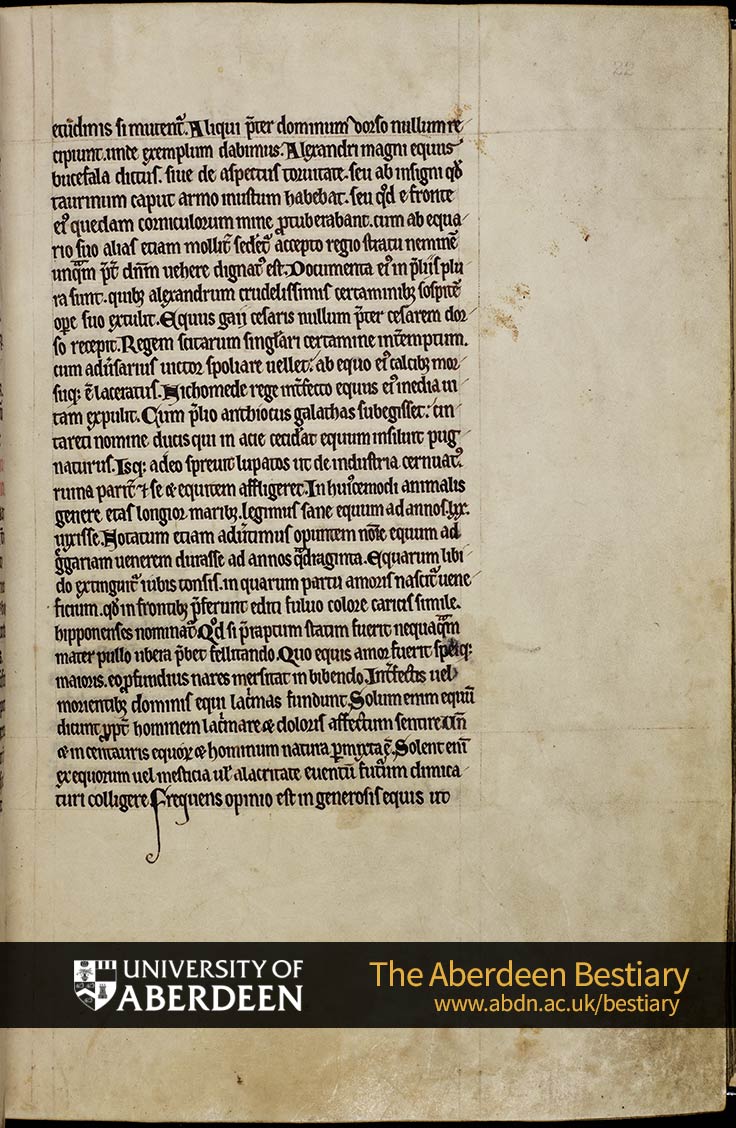 22
etudinis si mutent̃. Aliqui p̃ter dominum dorso nullum re
cipiunt. unde exemplum dabimus. Alexandri magni equus
bucefala dictus. siue de aspectus toruitate. seu ab insigni qđ
taurinum caput armo inustum habebat. seu qđ e fronte
eiꝰ quedam corniculorum mine ꝓtuberabant. cum ab equa
rio suo alias etiam mollit̃ sedet̃ accepto regio stratu neminẽ
unq̃m p̃t̃ dñm uehere dignatꝰ est. Documenta eiꝰ in p̃liis plu
ra sunt. quibꝫ alexandrum crudelissimis certaminibꝫ sospitẽ
oꝑe suo extulit. Equus gaii cesaris nullum p̃ter cesarem dor
so recepit. Regem scitarum singl̃ari certamine int̃emptum.
cum adũsarius uictor spoliare uellet: ab equo eiꝰ calcibꝫ mor
suqꝫ ẽ laceratus. Nichomede rege int̃fecto equus eiꝰ inedia ui
tam expulit. Cum p̃lio anthiocus galathas subegisset: cin
tareti nomine ducis qui in acie ceciđat equum insiluit pug
naturus. Isqꝫ adeo spreuit lupatos ut de industria cernuatꝰ.
ruina parit̃ ⁊ se & equitem affligeret. In huiꝰcemodi animalis
genere etas longior maribꝫ. legimus sane equum ad annos. lxx.
uixisse. Notatum etiam adũtimus opuntem noĩe equum ad
g̃gariam uenerem durasse ad annos q̃draginta. Equarum libi
do extinguit̃ iubis tonsis. in quarum partu amoris nascit̃ uene
ficium. qđ in frontibꝫ p̃ferunt editi fuluo colore caricis simile.
hipponenses nominat̃. Qđ si p̃raptum statim fuerit nequaq̃m
mater pullo ubera p̃bet fellitando. Quo equis amor fuerit speiqꝫ
maioris. eo ꝓfundius nares mersitat in bibendo. Int̃fectis uel
morientibꝫ dominis equi lac̃mas fundunt. Solum enim equũ
dicunt ꝓpt̃ hominem lac̃mare & doloris affectum sentire. Uñ
& in centauris equoꝝ & hominum natura ꝑmixta ẽ. Solent eni̾
ex equorum uel mesticia ul̾ alacritate euentũ fut̃um dimica
turi colligere. Frequens opinio est in generosis equis ut
UNIVERSITY OF
ABERDEEN
The Aberdeen Bestiary
www.abdn.ac.uk/bestiary